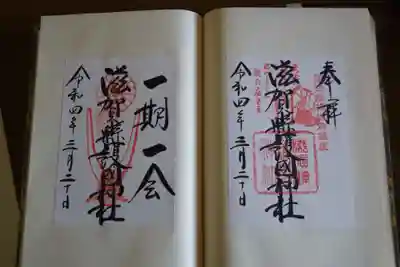 奉拝
滋賀縣護國神社
令和四年三月二十日
一期一会
滋賀縣護國神社
令和四年三月二十日